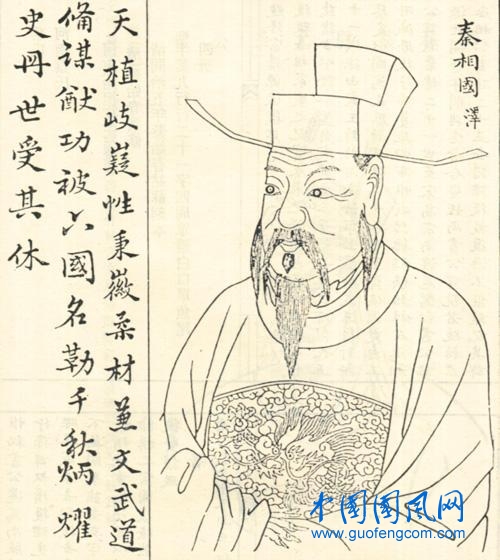 秦相國澤
天植岐嶷性秉徽柔材兼文武道
俻謀猷功被六國名勒千秋炳燿
史冊世受其休
中国国风网
www.guofengcom.com